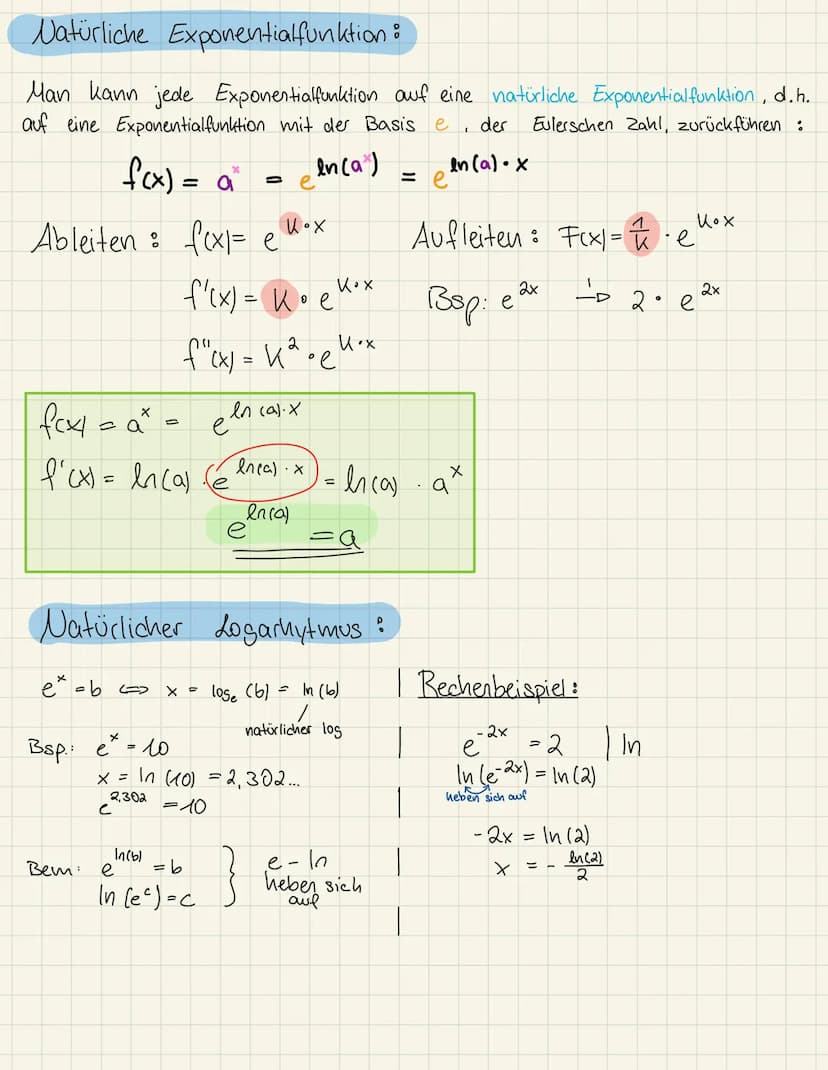 Natürliche Exponentialfunktion:
Man kann jede Exponentialfunktion auf eine natürliche Exponentialfunktion, d.h.
auf eine Exponentialfunktion mit der Basis e, der Eulerschen Zahl, zurückführen:
f(x) = a^x = e^(ln(a^x)) = e^(ln(a)·x)
Ableiten: f(x) = e^(k·x)
f'(x) = k · e^(k·x)
f''(x) = k² · e^(k·x)
Aufleiten: F(x) = 1/k · e^(k·x)
Bsp: e^(2x) —'→ 2 · e^(2x)
f(x) = a^x = e^(ln(a)·x)
f'(x) = ln(a) · e^(ln(a)·x) = ln(a) · a^x
e^(ln(a)) = a
Natürlicher Logarhytmus:
e^x = b ⇔ x = los_e (b) = ln(b)
natürlicher log
Bsp.: e^x = 10
x = ln(10) = 2,302...
e^(2,302) = 10
Bem: e^(ln(b)) = b
ln(e^c) = c
} e - ln
heben sich
auf
Rechenbeispiel:
e^(-2x) = 2 | ln
ln(e^(-2x)) = ln(2)
heben sich auf
-2x = ln(2)
x = - ln(2)/2